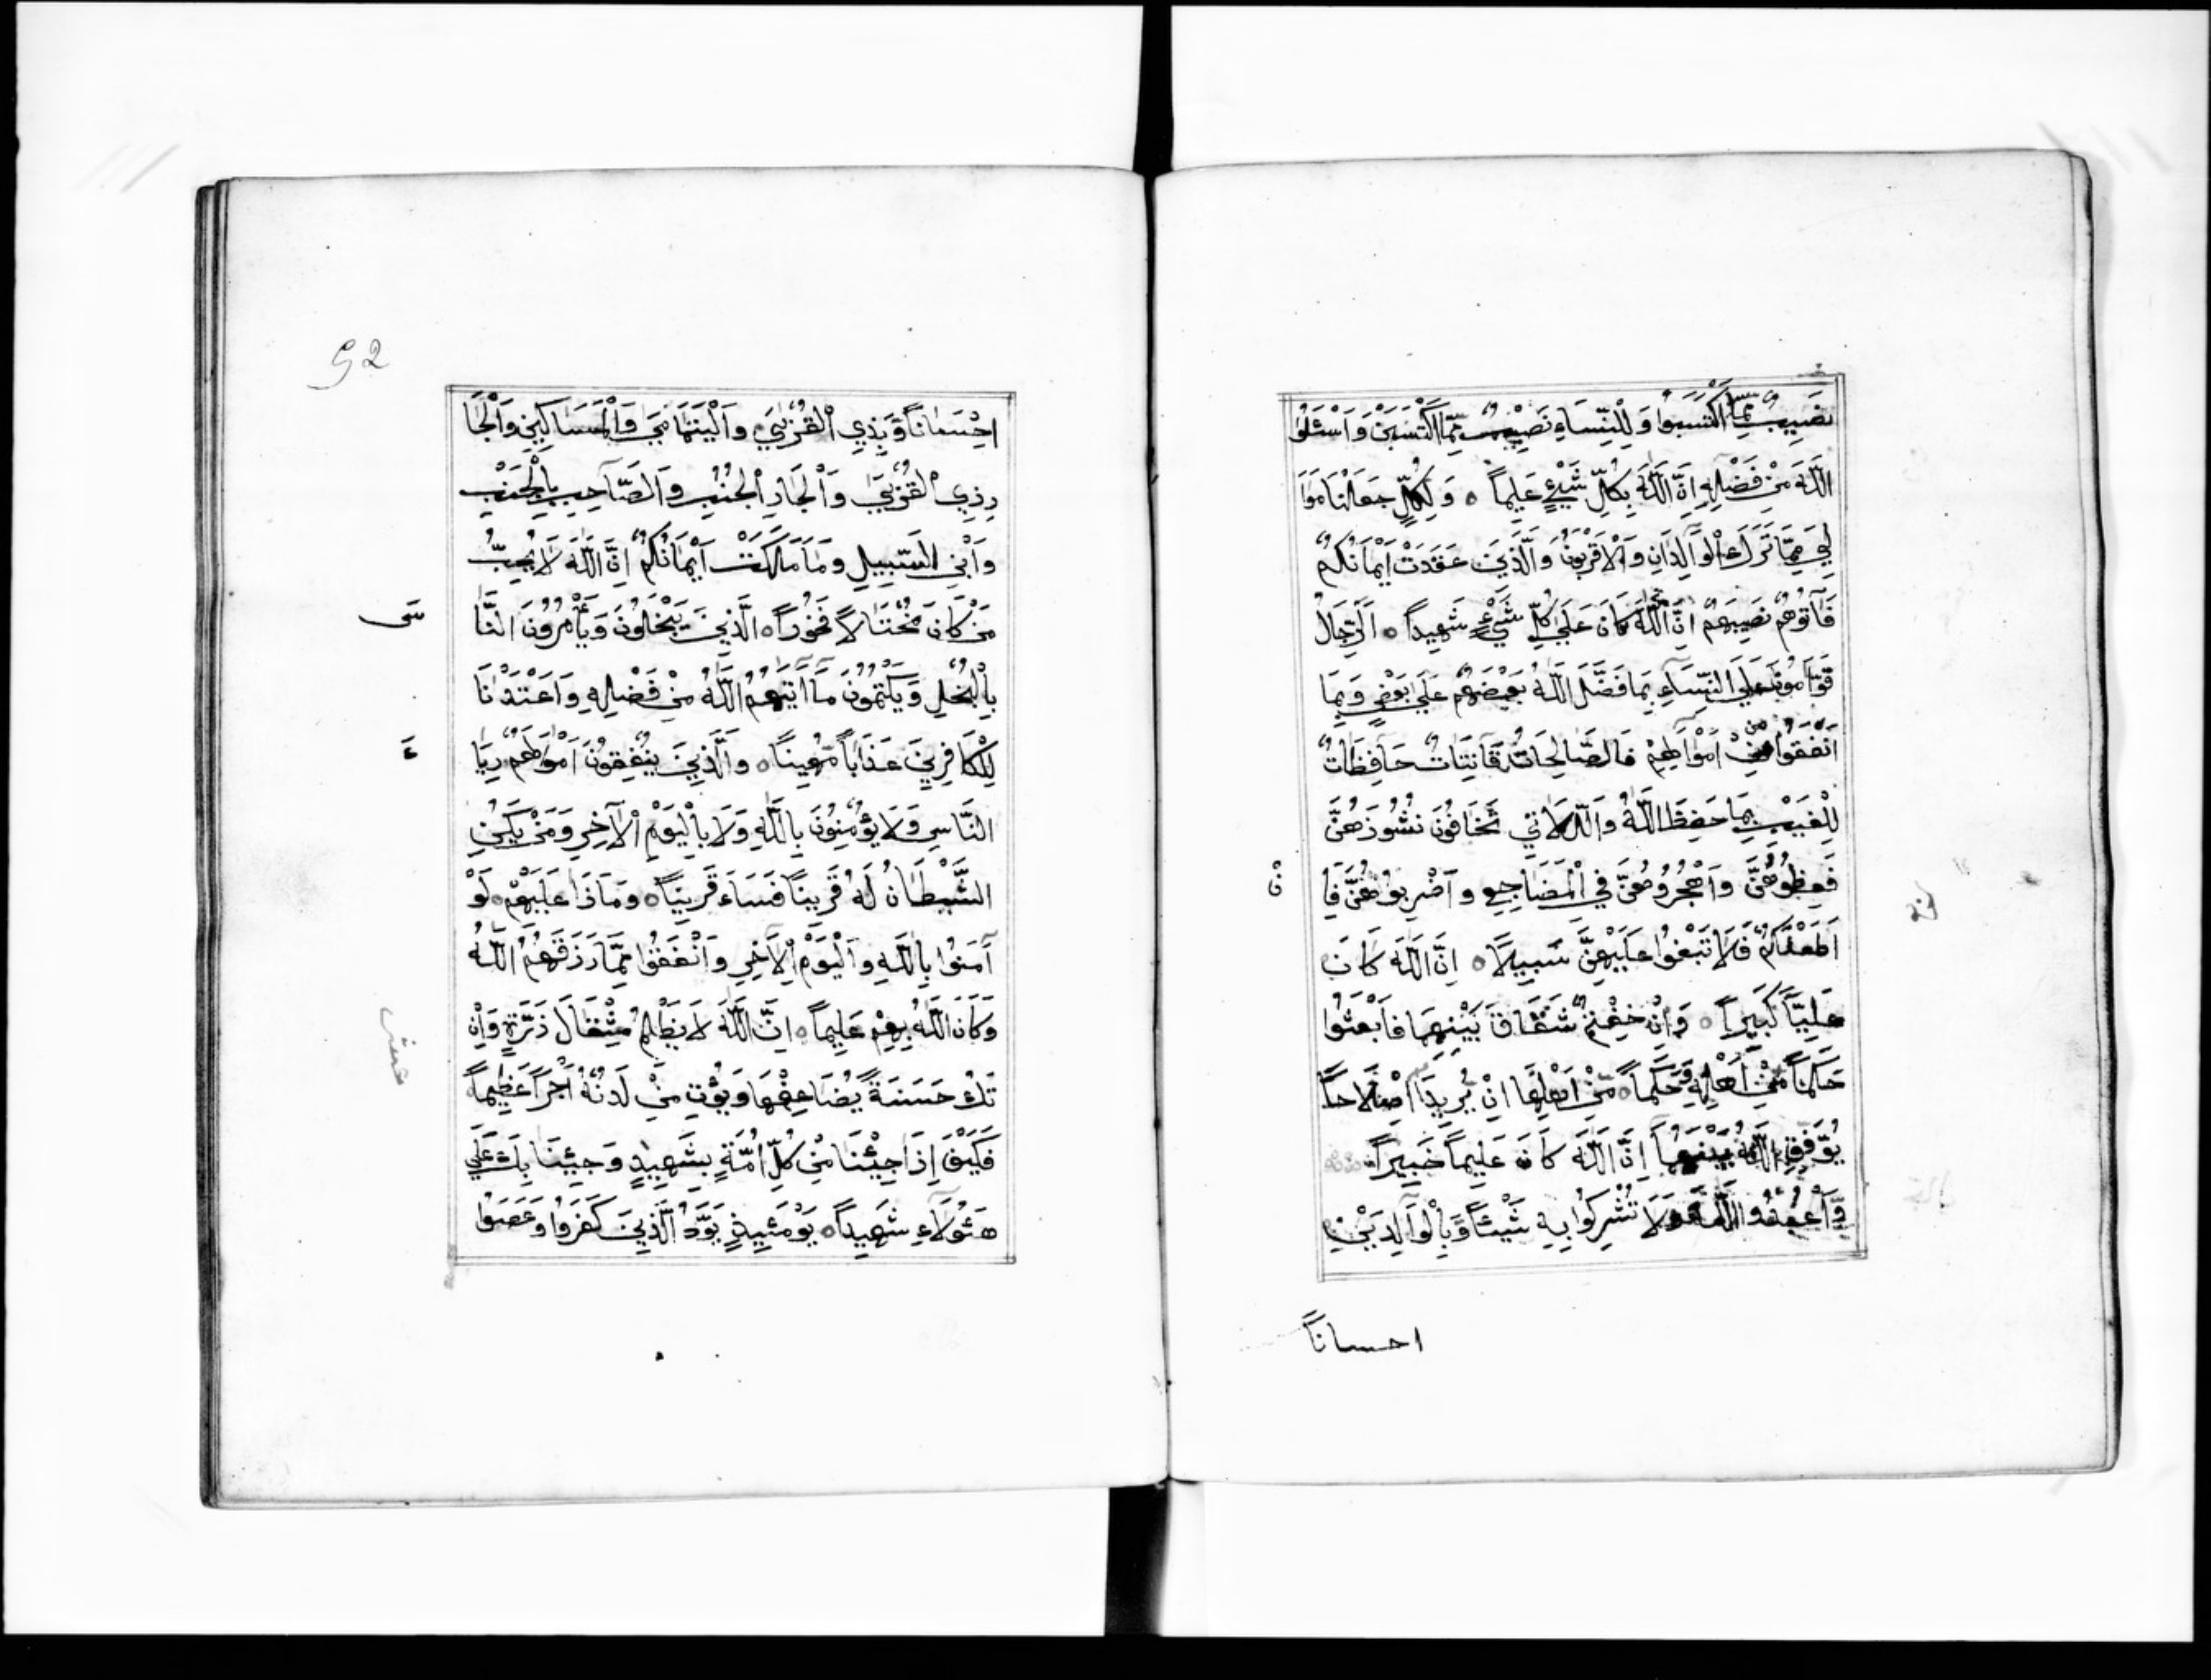 نَصِيبٌ مِمَّا اكْتَسَبُوا وَلِلنِّسَاءِ نَصِيبٌ مِمَّا اكْتَسَبْنَ وَاسْئَلُوا
اللَّهَ مِنْ فَضْلِهِ إِنَّ اللَّهَ بِكُلِّ شَيْءٍ عَلِيماً ٥ وَلِكُلٍّ جَعَلْنَا مَوَا
لِيَ مِمَّا تَرَكَ الْوَالِدَانِ وَالْأَقْرَبُونَ وَالَّذِينَ عَقَدَتْ أَيْمَانُكُمْ
فَآتُوهُمْ نَصِيبَهُمْ إِنَّ اللَّهَ كَانَ عَلَى كُلِّ شَيْءٍ شَهِيداً ٥ اَلرِّجَالُ
قَوَّامُونَ عَلَى النِّسَاءِ بِمَا فَضَّلَ اللَّهُ بَعْضَهُمْ عَلَى بَعْضٍ وَبِمَا
أَنْفَقُوا مِنْ أَمْوَالِهِمْ فَالصَّالِحَاتُ قَانِتَاتٌ حَافِظَاتٌ
لِلْغَيْبِ بِمَا حَفِظَ اللَّهُ وَاللَّاتِي تَخَافُونَ نُشُوزَهُنَّ
فَعِظُوهُنَّ وَاهْجُرُوهُنَّ فِي الْمَضَاجِعِ وَاضْرِبُوهُنَّ فَإِ
نْ
أَطَعْنَكُمْ فَلَا تَبْغُوا عَلَيْهِنَّ سَبِيلًا ٥ إِنَّ اللَّهَ كَانَ
عَلِيّاً كَبِيراً ٥ وَإِنْ خِفْتُمْ شِقَاقَ بَيْنِهِمَا فَابْعَثُوا
حَكَماً مِنْ أَهْلِهِ وَحَكَماً ٥ مِنْ أَهْلِهَا إِنْ يُرِيدَا إِصْلَاحاً
يُوَفِّقِ اللَّهُ بَيْنَهُمَا إِنَّ اللَّهَ كَانَ عَلِيماً خَبِيراً
وَاعْبُدُوا اللَّهَ وَلَا تُشْرِكُوا بِهِ شَيْئاً وَبِالْوَالِدَيْنِ
احساناً
52
إِحْسَاناً وَبِذِي الْقُرْبَى وَالْيَتَامَى وَالْمَسَاكِينِ وَالْجَا
رِ ذِي الْقُرْبَى وَالْجَارِ الْجُنُبِ وَالصَّاحِبِ بِالْجَنْبِ
وَابْنِ السَّبِيلِ وَمَا مَلَكَتْ أَيْمَانُكُمْ إِنَّ اللَّهَ لَا يُحِبُّ
مَنْ كَانَ مُخْتَالًا فَخُوراً ٥ الَّذِينَ يَبْخَلُونَ وَيَأْمُرُونَ النَّا
سَ
بِالْبُخْلِ وَيَكْتُمُونَ مَا آتَيهُمُ اللَّهُ مِنْ فَضْلِهِ وَأَعْتَدْنَا
لِلْكَافِرِينَ عَذَاباً مُهِيناً ٥ وَالَّذِينَ يُنْفِقُونَ أَمْوَالَهُمْ رِيَا
ءَ
النَّاسِ وَلَا يُؤْمِنُونَ بِاللَّهِ وَلَا بِالْيَوْمِ الْآخِرِ وَمَنْ يَكُنِ
الشَّيْطَانُ لَهُ قَرِيناً فَسَاءَ قَرِيناً ٥ وَمَاذَا عَلَيْهِمْ لَوْ
آمَنُوا بِاللَّهِ وَالْيَوْمِ الْآخِرِ وَأَنْفَقُوا مِمَّا رَزَقَهُمُ اللَّهُ
وَكَانَ اللَّهُ بِهِمْ عَلِيماً ٥ إِنَّ اللَّهَ لَا يَظْلِمُ مِثْقَالَ ذَرَّةٍ وَإِنْ
تَكُ حَسَنَةً يُضَاعِفْهَا وَيُؤْتِ مِنْ لَدُنْهُ أَجْراً عَظِيماً
فَكَيْفَ إِذَا جِئْنَا مِنْ كُلِّ أُمَّةٍ بِشَهِيدٍ وَجِئْنَا بِكَ عَلَى
هَؤُلَاءِ شَهِيداً ٥ يَوْمَئِذٍ يَوَدُّ الَّذِينَ كَفَرُوا وَعَصَوُا